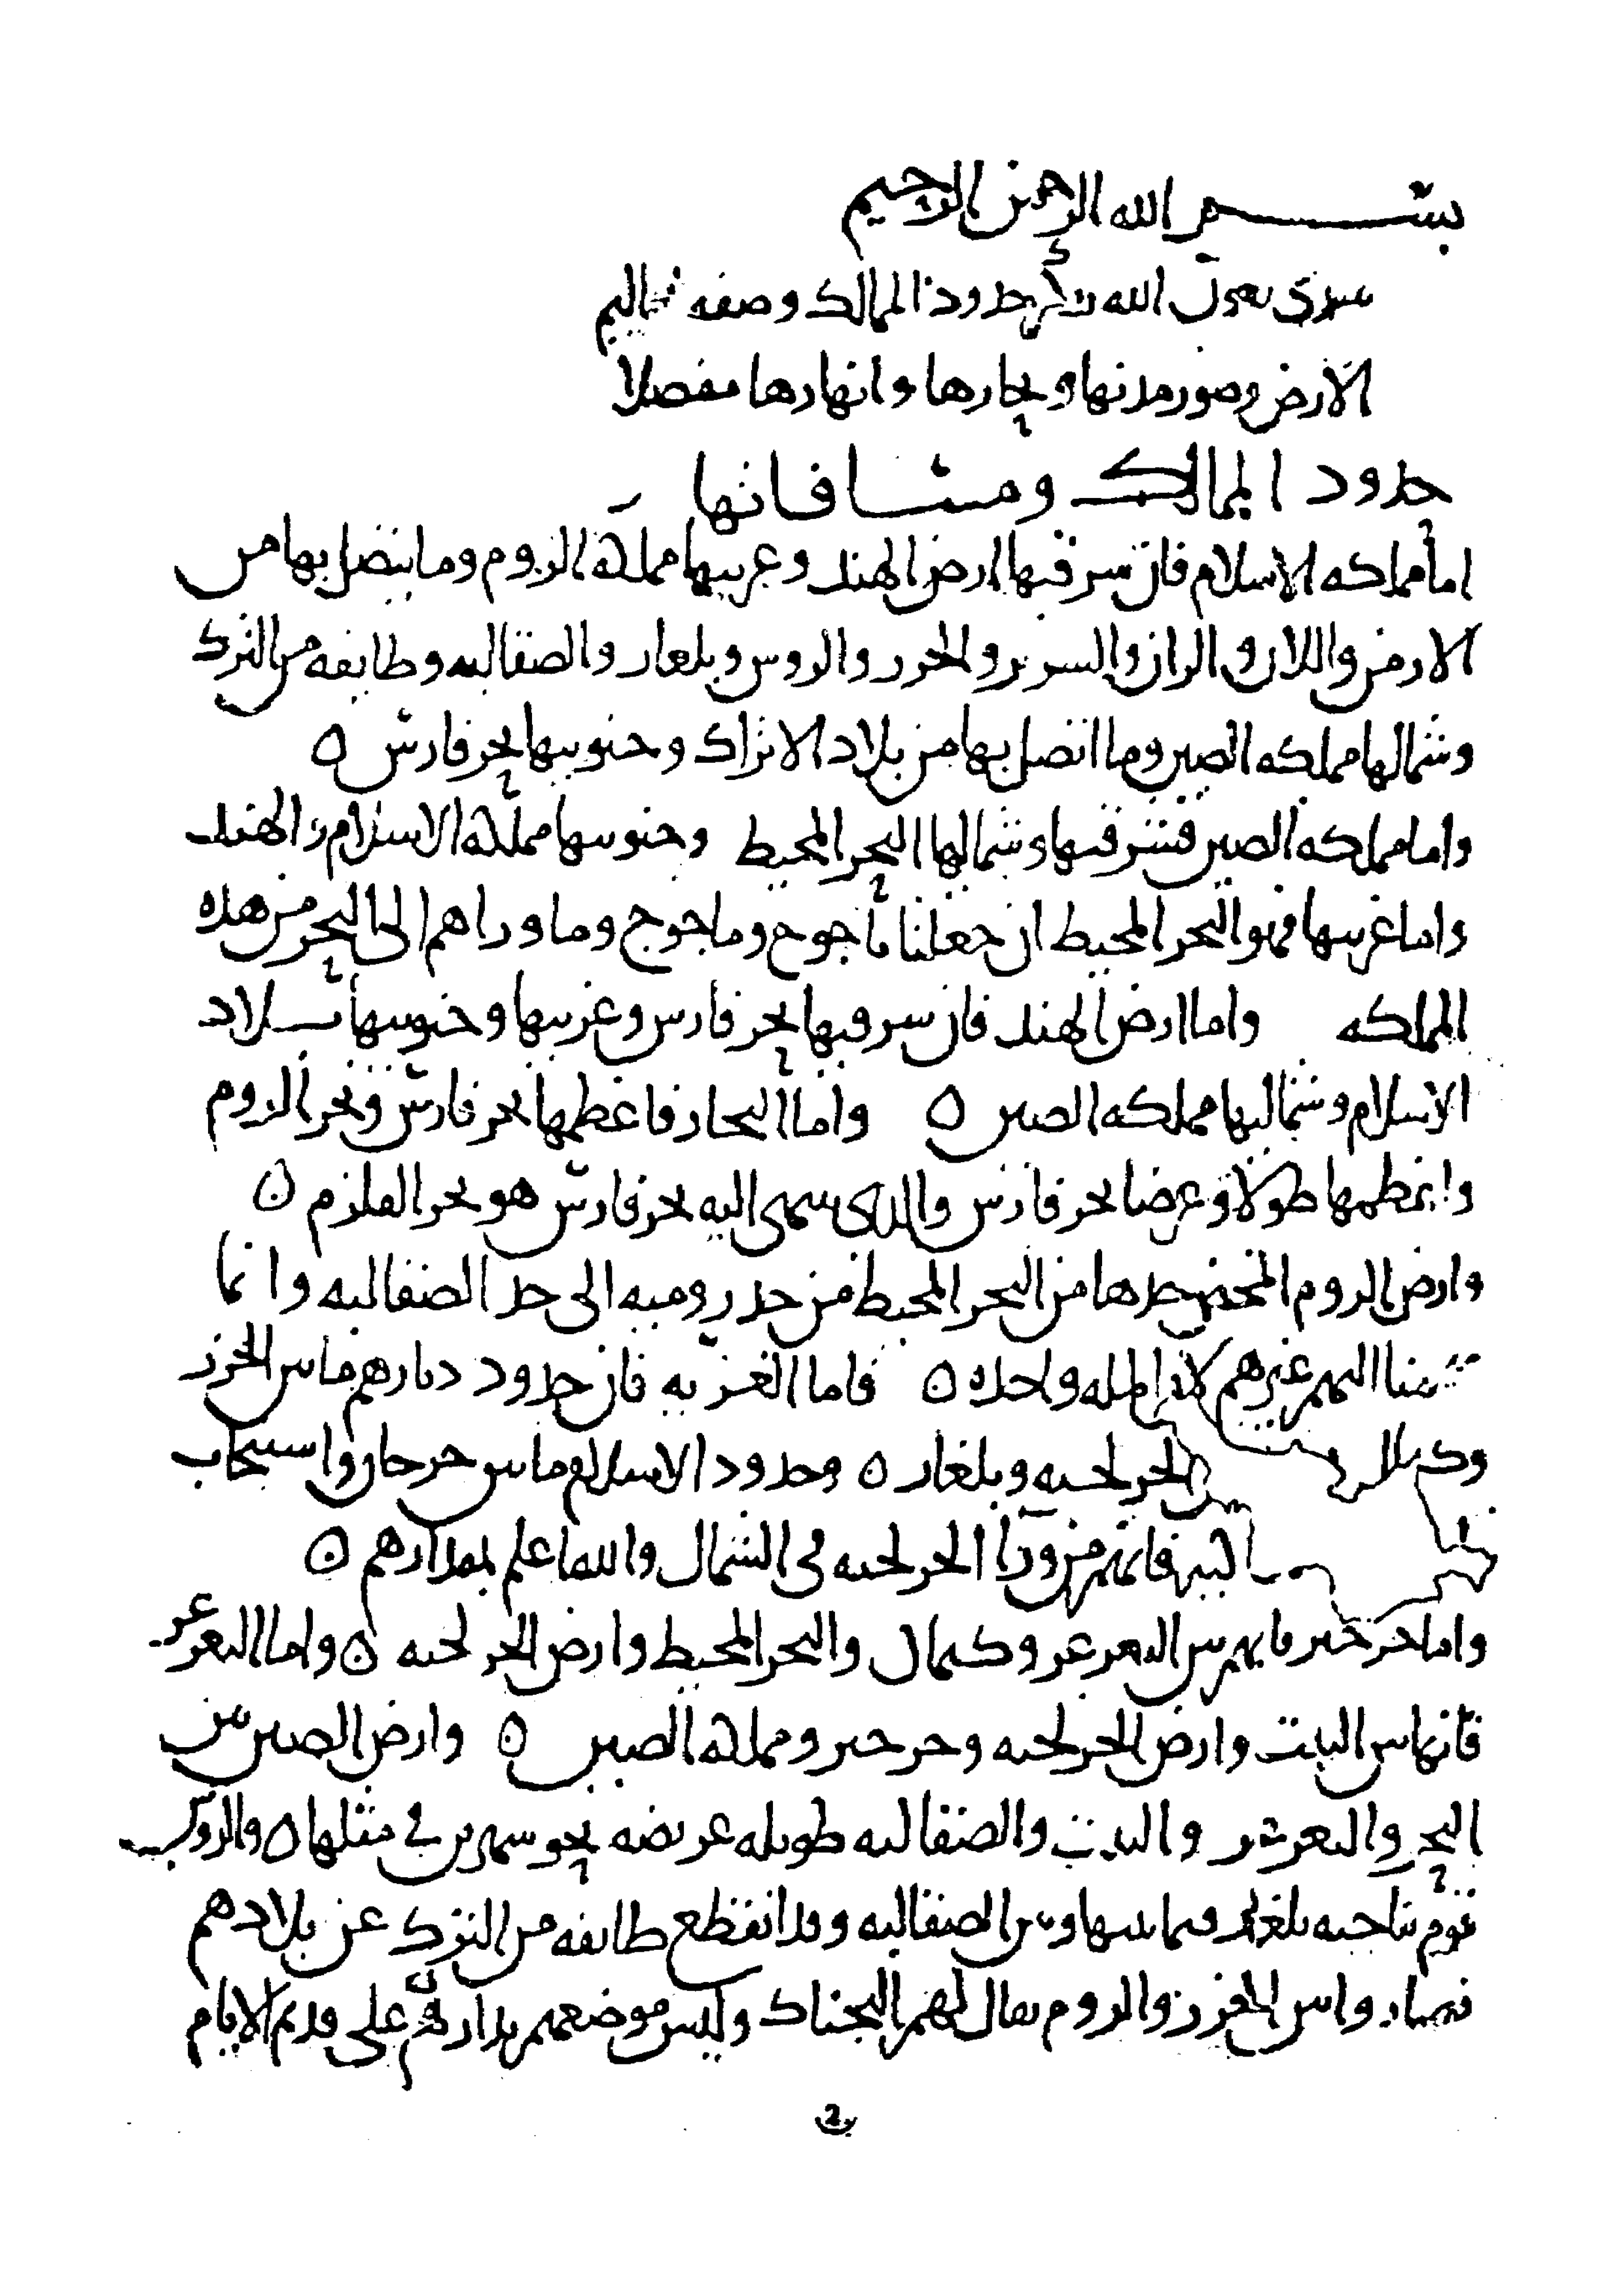 بسم الله الرحمن الرحيم
نبتدى بعون الله بذكر حدود الممالك وصفه اقاليم
الارض وصور مدنها و بحارها و انهارها مفصلا
حدود الممالك ومسافاتها
اما مملكه الاسلام فان شرقيها ارض الهند وغربيها مملكة الروم وما يتصل بها من
الارمن واللان والران والسرير والخزر والروس وبلغار والصقالبه وطايفه من الترك
وشمالها مملكه الصين وما اتصل بها من بلاد الاتراك وجنوبيها بحر فارس ه
واما مملكه الصين فشرقيها وشمالها البحر المحيط وجنوبيها مملكة الاسلام والهند
واما غربيها فهو البحر المحيط ان جعلنا ياجوج وماجوج وما وراهم الى البحر من هذه
المملكه واما ارض الهند فان شرقيها بحر فارس وغربيها وجنوبيها بلاد
الاسلام وشماليها مملكه الصين ه واما البحار فاعظمها بحر فارس وبحر الروم
واعظمها طولا وعرضا بحر فارس والذى ينتهى اليه بحر فارس هو بحر القلزم ه
وارض الروم حدها من البحر المحيط من حد روميه الى حد الصقالبه وانما
اليهم غيرهم لان المله واحده ه فاما الغزيه فان حدود ديارهم ما بين الخزر
وكيمال الخرلخيه وبلغار ه وحدود الاسلام ما بين جرجان واسبيجاب
فانهم من ورا الخرلخيه فى الشمال والله اعلم بمقدارهم ه
واما خرخيز فانهم بين التغزغز وكيمال والبحر المحيط وارض الخرلخيه ه واما التغزغز
فانها بين التبت وارض الخرلخيه وخرخيز ومملكة الصين ه وارض الصين بين
البحر والتغزغز والتبت والصقالبه طويله عريضه نحو شهرين في مثلها ه والروس
قوم بناحيه بلغار فيما بينها وبين الصقالبه وقد انقطع طايفه من الترك عن بلادهم
فصاروا بين الخزر والروم يقال لهم البجناك وليس موضعهم بدار لهم على قديم الايام
2